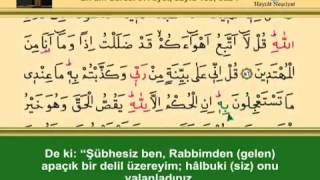 Hayrât Neşriyat
اللّٰهِ قُلْ لَٓا اَتَّبِعُ اَهْوَٓاءَكُمْۙ قَدْ ضَلَلْتُ اِذًا وَمَٓا اَنَا مِنَ
الْمُهْتَد۪ينَ ﴿٥٦﴾ قُلْ اِنّ۪ي عَلٰى بَيِّنَةٍ مِنْ رَبّ۪ي وَكَذَّبْتُمْ بِه۪ۜ مَا عِنْد۪ي
مَا تَسْتَعْجِلُونَ بِه۪ۜ اِنِ الْحُكْمُ اِلَّا لِلّٰهِۜ يَقُصُّ الْحَقَّ وَهُوَ خَيْرُ
De ki: “Şübhesiz ben, Rabbimden (gelen)
apaçık bir delil üzereyim; hâlbuki (siz) onu
yalanladınız.